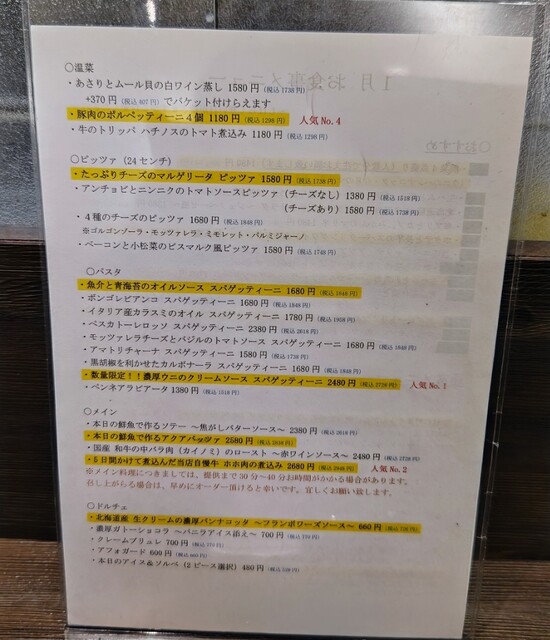 ○温菜
・あさりとムール貝の白ワイン蒸し 1580円(税込1738円)
+370円(税込407円)でバケット付けらえます
・豚肉のポルペッティーニ4個 1180円(税込1298円) 人気No.4
・牛のトリッパ ハチノスのトマト煮込み 1180円(税込1298円)
○ピッツァ(24センチ)
・たっぷりチーズのマルゲリータ ピッツァ 1580円(税込1738円)
・アンチョビとニンニクのトマトソースピッツァ(チーズなし)1380円(税込1519円)
(チーズあり)1580円(税込1738円)
・4種のチーズのピッツァ 1680円(税込1848円)
※ゴルゴンゾーラ・モッツァレラ・ミモレット・パルミジャーノ
・ベーコンと小松菜のビスマルク風ピッツァ 1580円(税込1740円)
○パスタ
・魚介と青海苔のオイルソース スパゲッティーニ 1680円(税込1848円)
・ボンゴレビアンコ スパゲッティーニ 1680円(税込1848円)
・イタリア産カラスミのオイル スパゲッティーニ 1780円(税込1958円)
・ペスカトーレロッソ スパゲッティーニ 2380円(税込2618円)
・モッツァレラチーズとバジルのトマトソース スパゲッティーニ 1680円(税込1848円)
・アマトリチャーナ スパゲッティーニ 1580円(税込1738円)
・黒胡椒を利かせたカルボナーラ スパゲッティーニ 1680円(税込1848円)
・数量限定!!濃厚ウニのクリームソース スパゲッティーニ 2480円(税込2728円) 人気No.1
・ペンネアラビアータ 1380円(税込1518円)
○メイン
・本日の鮮魚で作るソテー ～焦がしバターソース～ 2380円(税込2618円)
・本日の鮮魚で作るアクアパッツァ 2580円(税込2838円)
・国産 和牛の中バラ肉(カイノミ)のロースト ～赤ワインソース～ 2480円(税込2728円)
・5日間かけて煮込んだ当店自慢牛 ホホ肉の煮込み 2680円(税込2948円) 人気No.2
※メイン料理につきましては、提供まで30分～40分お時間がかかる場合があります。
召し上がらる場合は、早めにオーダー頂けると幸いです。宜しくお願い致します。
○ドルチェ
・北海道産 生クリームの濃厚パンナコッタ ～フランボワーズソース～ 660円(税込726円)
・濃厚ガトーショコラ ～バニラアイス添え～ 700円(税込770円)
・クレームブリュレ 700円(税込770円)
・アフォガード 600円(税込660円)
・本日のアイス＆ソルベ(2ピース選択) 480円(税込528円)